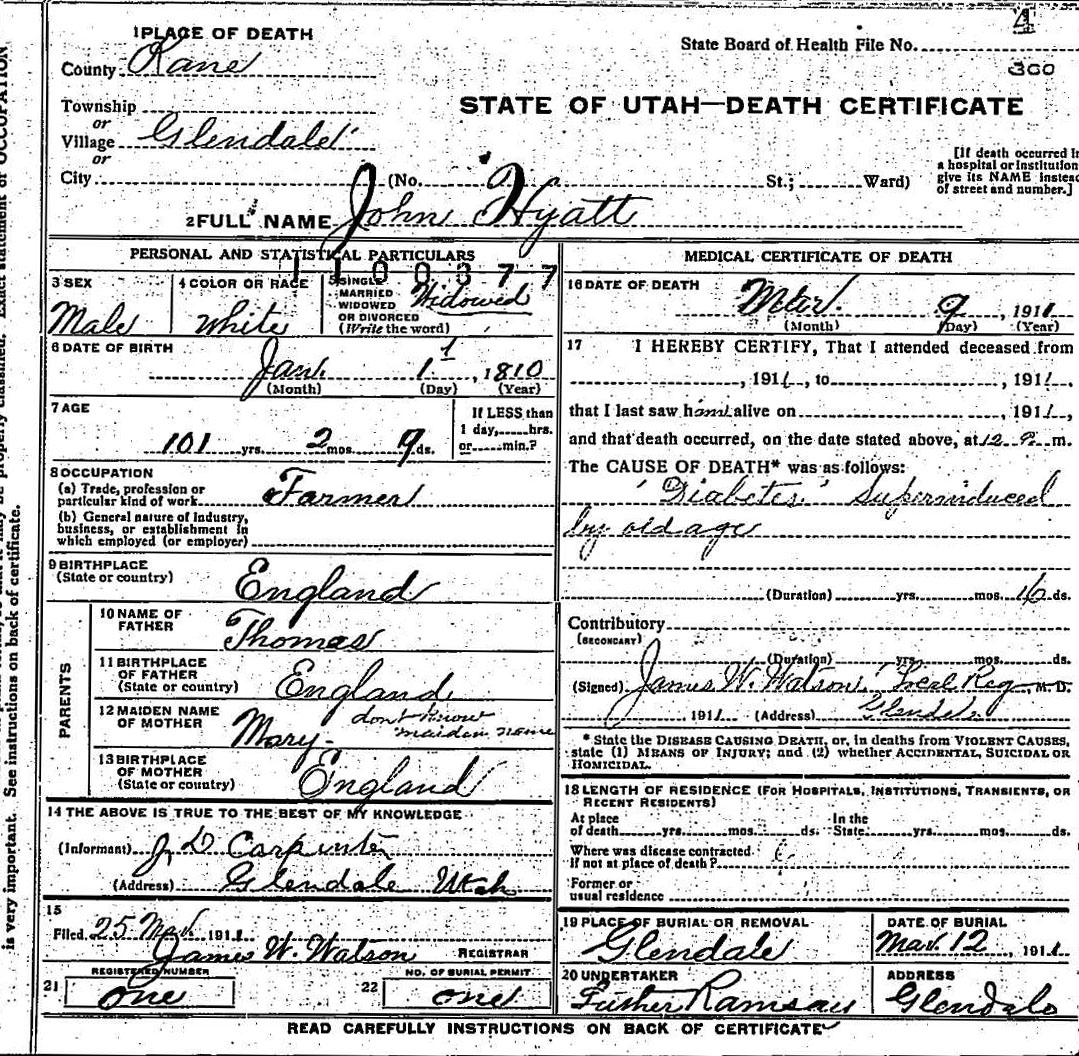 4
300
1 PLACE OF DEATH
County Kane
State Board of Health File No.
STATE OF UTAH—DEATH CERTIFICATE
Township
or
Village Glendale
or
City (No. St.; Ward)
[If death occurred in
a hospital or institution
give its NAME instead
of street and number.]
2 FULL NAME John Hyatt
PERSONAL AND STATISTICAL PARTICULARS
1100377
3 SEX
Male
4 COLOR OR RACE
White
5 SINGLE
MARRIED
WIDOWED
OR DIVORCED
(Write the word)
Widowed
6 DATE OF BIRTH
Jan. 1 , 1810
(Month) (Day) (Year)
7 AGE
101 yrs. 2 mos. 9 ds.
If LESS than
1 day, hrs.
or min.?
8 OCCUPATION
(a) Trade, profession or
particular kind of work Farmer
(b) General nature of industry,
business, or establishment in
which employed (or employer)
9 BIRTHPLACE
(State or country) England
PARENTS
10 NAME OF
FATHER Thomas
11 BIRTHPLACE
OF FATHER
(State or country) England
12 MAIDEN NAME
OF MOTHER Mary - dont know
maiden name
13 BIRTHPLACE
OF MOTHER
(State or country) England
14 THE ABOVE IS TRUE TO THE BEST OF MY KNOWLEDGE
(Informant) J D Carpenter
(Address) Glendale Utah
15
Filed 25 Mar 1911
James W. Watson REGISTRAR
21 REGISTERED NUMBER
one
22 NO. OF BURIAL PERMIT
one
MEDICAL CERTIFICATE OF DEATH
16 DATE OF DEATH
Mar. 9 , 1911
(Month) (Day) (Year)
17 I HEREBY CERTIFY, That I attended deceased from
, 1911, to , 1911,
that I last saw him alive on , 1911,
and that death occurred, on the date stated above, at 12 P. m.
The CAUSE OF DEATH* was as follows:
'Diabetes.' Superinduced
by old age
(Duration) yrs. mos. 16 ds.
Contributory
(SECONDARY)
(Duration) yrs. mos. ds.
(Signed) James W. Watson, Local Reg M. D.
, 1911 (Address) Glendale
* State the DISEASE CAUSING DEATH, or, in deaths from VIOLENT CAUSES,
state (1) MEANS OF INJURY; and (2) whether ACCIDENTAL, SUICIDAL OR
HOMICIDAL.
18 LENGTH OF RESIDENCE (FOR HOSPITALS, INSTITUTIONS, TRANSIENTS, OR
RECENT RESIDENTS)
At place In the
of death yrs. mos. ds. State yrs. mos. ds.
Where was disease contracted
If not at place of death?
Former or
usual residence
19 PLACE OF BURIAL OR REMOVAL
Glendale
DATE OF BURIAL
Mar. 12 , 1911
20 UNDERTAKER
Ramsay
ADDRESS
Glendale
READ CAREFULLY INSTRUCTIONS ON BACK OF CERTIFICATE
properly classified. Exact statement of OCCUPATION
is very important. See instructions on back of certificate.